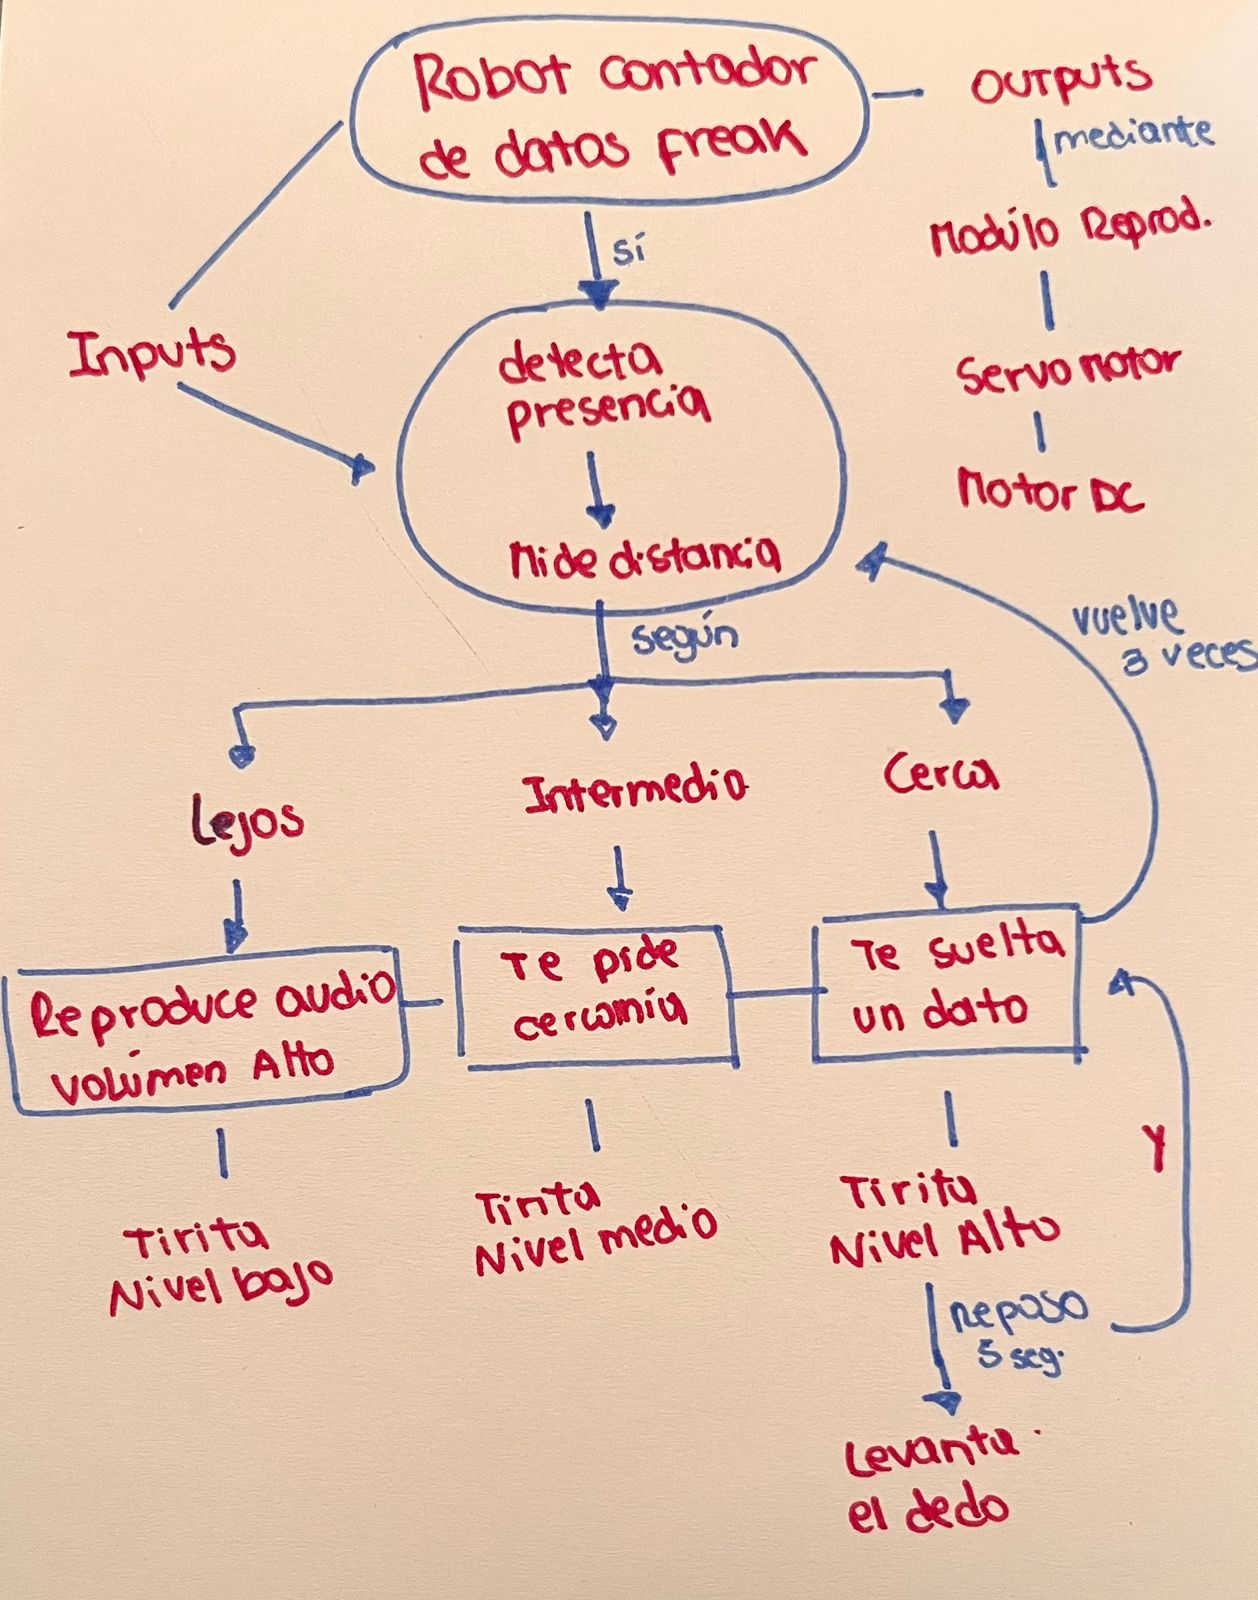 Robot contador
de datos freak
OUTPUTS
mediante
Modúlo Reprod.
Servo motor
Motor DC
sí
Inputs
detecta
presencia
Mide distancia
según
vuelve
3 veces
Lejos
Intermedio
Cerca
Reproduce audio
volúmen Alto
Te pide
cercanía
Te suelta
un dato
Tirita
Nivel bajo
Tirita
Nivel medio
Tirita
Nivel Alto
y
Reposo
5 seg.
Levanta
el dedo